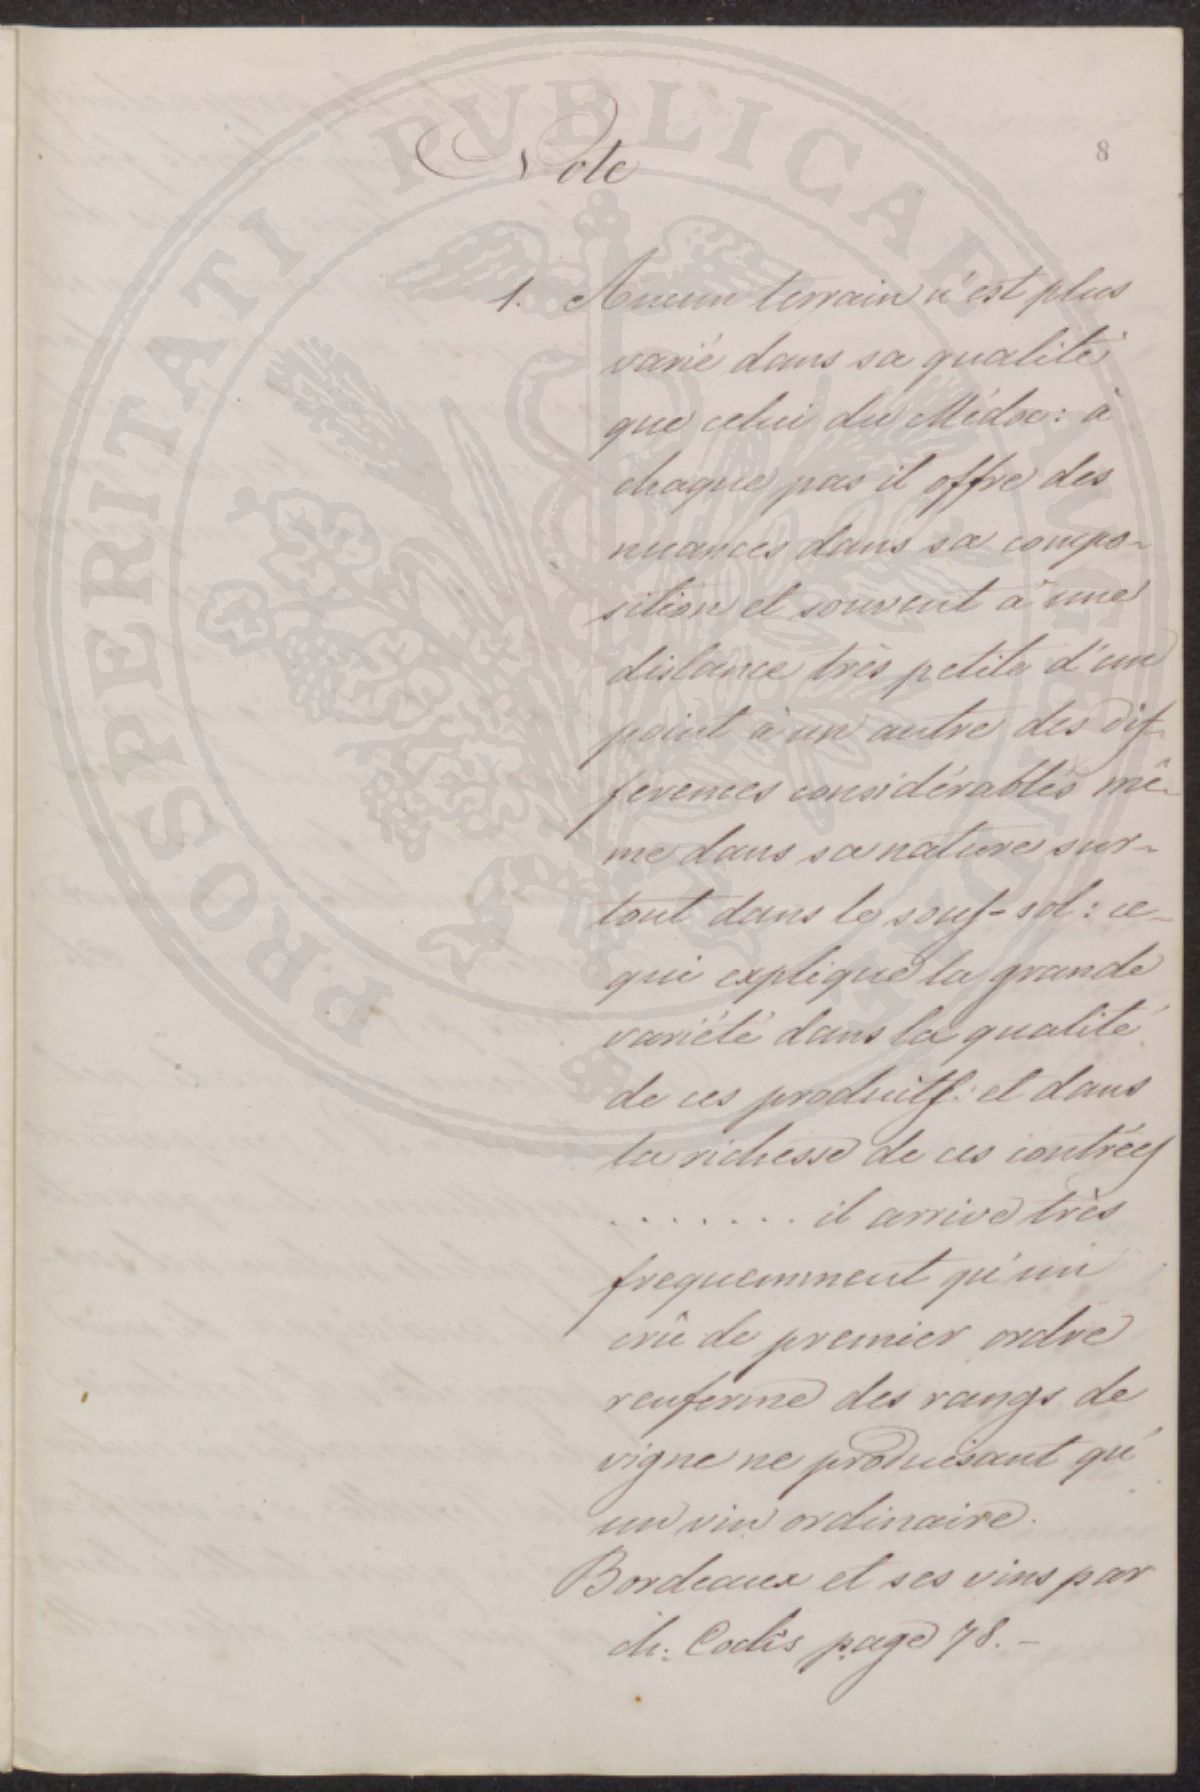 8
Note
1. Aucun terrain n'est plus
varié dans sa qualité
que celui du Médoc: à
chaque pas il offre des
nuances dans sa compo-
sition et souvent à une
distance très petite d'un
point à un autre des dif-
ferences considérables mê-
me dans sa nature sur-
tout dans le souf-sol: ce-
qui explique la grande
variété dans la qualité
de ces produitf: et dans
la richesse de ces contréef
........ il arrive très
frequemment qu'un
crû de premier ordre
renferme des rangs de
vigne ne produisant qu'
un vin ordinaire.
Bordeaux et ses vins par
ch: Coclis page 78.-
PROSPERITATI PUBLICAE